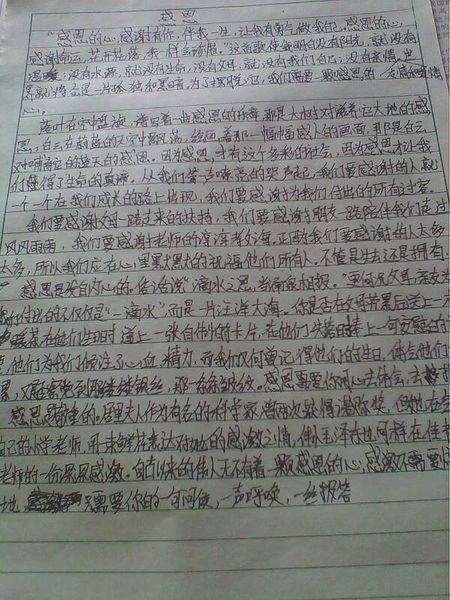 感恩
"感恩的心,感谢有你,伴我一生,让我有勇气做我自己,感恩的心,
感谢命运,花开花落,我一样会珍惜。"这首歌使我明白没有阳光,就没有
温暖;没有水源,就没有生命,没有父母,就没有我们自己;没有亲情,世
界就将会是一片孤独和黑暗。为了摆脱它,我们需要一颗感恩的
心。
落叶在空中盘旋,谱写着一曲感恩的乐章,那是大树对滋养它大地的感
恩;白云在蔚蓝的天空中飘荡,绘画着那一幅幅感人的画面,那是白云
对哺育它的蓝天的感恩。因为感恩才有这个多彩的社会,因为感恩才让我
们懂得了生命的真谛。从我们第一声啼哭的哭声起,我们要感谢的人就
一个一个在我们成长的路上出现,我们要感谢为我们付出的所有过客。
我们要感谢父母一路过来的扶持,我们要感谢朋友一路陪伴我们走过
风风雨雨,我们要感谢老师的谆谆教诲。正因为我们要感谢的人太多
太多,所以我们应在心里默默的祝福他们所有人,不管是失去还是拥有。
感恩是发自内心的。俗话说"滴水之恩,当涌泉相报。"更何况父母,亲友为
我们付出的不仅仅是"一滴水",而是一片汪洋大海。你是否在父母劳累后送上一
在他们生日时递上一张自制的卡片,在他们失落时捧上一句安慰的
,他们为我们倾注了心血、精力,而我们又何曾记得他们的生日,体会他们
累,又何曾察觉到那缕缕银丝,那一条条皱纹。感恩需要你用心去体会,去报
感恩是敬重的。居里夫人作为有名的科学家,曾两次获得诺贝尔奖,但她在会
自己的小学老师,用一束鲜花表达对她的感激之情;伟人毛泽东也同样在佳节
老师的一份深感激。自古以来的伟人无不有着一颗感恩的心,感激不需要惊
地,只需要你的一句问候,一声呼唤,一丝报答